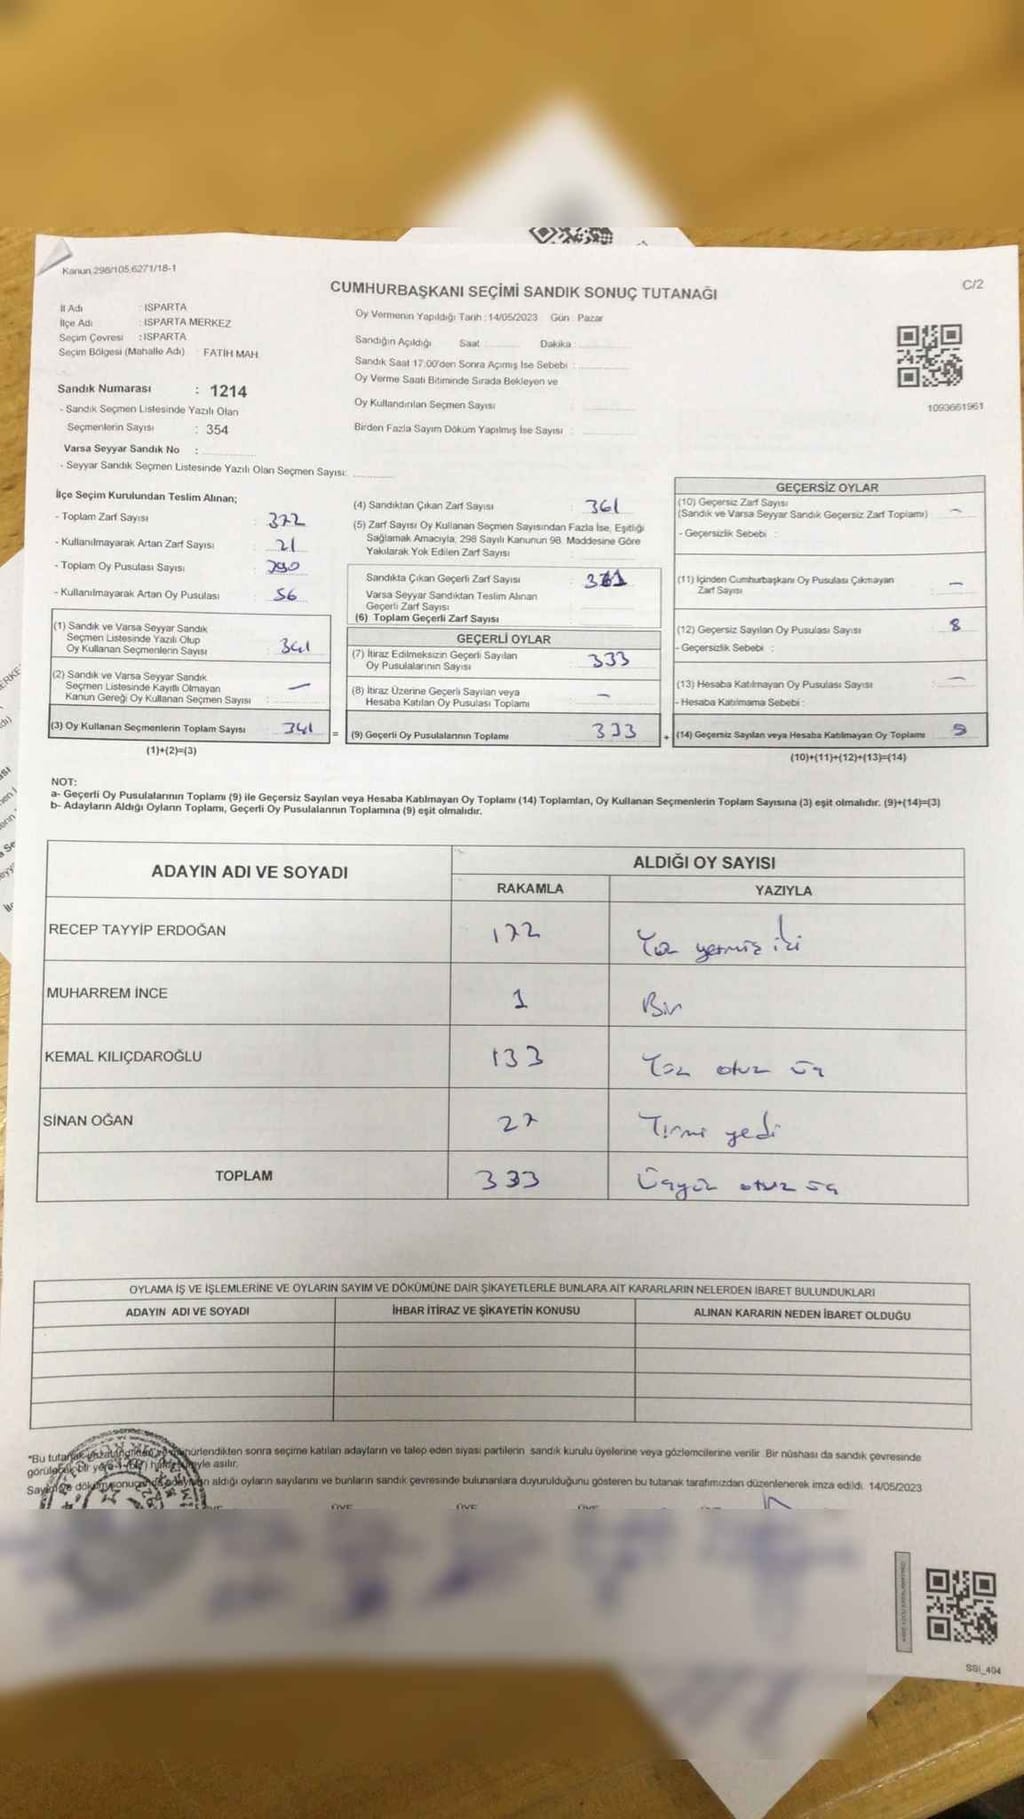 Kanun 298/105,6271/18-1
C/2
CUMHURBAŞKANI SEÇİMİ SANDIK SONUÇ TUTANAĞI
İl Adı : ISPARTA
İlçe Adı : ISPARTA MERKEZ
Seçim Çevresi : ISPARTA
Seçim Bölgesi (Mahalle Adı) : FATİH MAH.
Oy Vermenin Yapıldığı Tarih : 14/05/2023 Gün : Pazar
Sandığın Açıldığı Saat Dakika :
Sandık Saat 17:00'den Sonra Açımış İse Sebebi :
Oy Verme Saati Bitiminde Sırada Bekleyen ve
Oy Kullandırılan Seçmen Sayısı
Birden Fazla Sayım Döküm Yapılmış İse Sayısı :
1093661961
Sandık Numarası : 1214
- Sandık Seçmen Listesinde Yazılı Olan
Seçmenlerin Sayısı : 354
Varsa Seyyar Sandık No :
- Seyyar Sandık Seçmen Listesinde Yazılı Olan Seçmen Sayısı:
İlçe Seçim Kurulundan Teslim Alınan;
- Toplam Zarf Sayısı : 372
- Kullanılmayarak Artan Zarf Sayısı : 21
- Toplam Oy Pusulası Sayısı :
- Kullanılmayarak Artan Oy Pusulası : 56
(1) Sandık ve Varsa Seyyar Sandık
Seçmen Listesinde Yazılı Olup
Oy Kullanan Seçmenlerin Sayısı 341
(2) Sandık ve Varsa Seyyar Sandık
Seçmen Listesinde Kayıtlı Olmayan
Kanun Gereği Oy Kullanan Seçmen Sayısı : —
(3) Oy Kullanan Seçmenlerin Toplam Sayısı 341 =
(1)+(2)=(3)
(4) Sandıktan Çıkan Zarf Sayısı 361
(5) Zarf Sayısı Oy Kullanan Seçmen Sayısından Fazla İse, Eşitliği
Sağlamak Amacıyla, 298 Sayılı Kanunun 98. Maddesine Göre
Yakılarak Yok Edilen Zarf Sayısı
Sandıkta Çıkan Geçerli Zarf Sayısı :
Varsa Seyyar Sandıktan Teslim Alınan
Geçerli Zarf Sayısı
(6) Toplam Geçerli Zarf Sayısı
GEÇERLİ OYLAR
(7) İtiraz Edilmeksizin Geçerli Sayılan
Oy Pusulalarının Sayısı 333
(8) İtiraz Üzerine Geçerli Sayılan veya
Hesaba Katılan Oy Pusulası Toplamı —
(9) Geçerli Oy Pusulalarının Toplamı 333 +
GEÇERSİZ OYLAR
(10) Geçersiz Zarf Sayısı
(Sandık ve Varsa Seyyar Sandık Geçersiz Zarf Toplamı) —
- Geçersizlik Sebebi :
(11) İçinden Cumhurbaşkanı Oy Pusulası Çıkmayan
Zarf Sayısı —
(12) Geçersiz Sayılan Oy Pusulası Sayısı 8
- Geçersizlik Sebebi :
(13) Hesaba Katılmayan Oy Pusulası Sayısı —
- Hesaba Katılmama Sebebi :
(14) Geçersiz Sayılan veya Hesaba Katılmayan Oy Toplamı
(10)+(11)+(12)+(13)=(14)
NOT:
a- Geçerli Oy Pusulalarının Toplamı (9) ile Geçersiz Sayılan veya Hesaba Katılmayan Oy Toplamı (14) Toplamları, Oy Kullanan Seçmenlerin Toplam Sayısına (3) eşit olmalıdır. (9)+(14)=(3)
b- Adayların Aldığı Oyların Toplamı, Geçerli Oy Pusulalarının Toplamına (9) eşit olmalıdır.
ADAYIN ADI VE SOYADI ALDIĞI OY SAYISI
RAKAMLA YAZIYLA
RECEP TAYYİP ERDOĞAN 172 Yüz yetmiş iki
MUHARREM İNCE 1 Bir
KEMAL KILIÇDAROĞLU 133 Yüz otuz üç
SİNAN OĞAN 27 Yirmi yedi
TOPLAM 333 Üçyüz otuz üç
OYLAMA İŞ VE İŞLEMLERİNE VE OYLARIN SAYIM VE DÖKÜMÜNE DAİR ŞİKAYETLERLE BUNLARA AİT KARARLARIN NELERDEN İBARET BULUNDUKLARI
ADAYIN ADI VE SOYADI İHBAR İTİRAZ VE ŞİKAYETİN KONUSU ALINAN KARARIN NEDEN İBARET OLDUĞU
*Bu tutanak hürlendikten sonra seçime katılan adayların ve talep eden siyasi partilerin sandık kurulu üyelerine veya gözlemcilerine verilir. Bir nüshası da sandık çevresinde
görülecek bir yere asılır.
aldığı oyların sayılarını ve bunların sandık çevresinde bulunanlara duyurulduğunu gösteren bu tutanak tarafımızdan düzenlenerek imza edildi. 14/05/2023
ÜYE ÜYE ÜYE
SGI_404